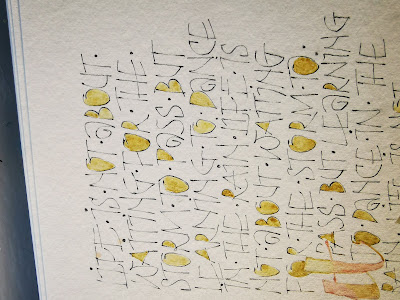 LIFE·IS·NOT ABOUT·
WAITING·FOR·THE·
STORM·TO·PASS·BUT
LEARNING·TO·DANCE
IN·THE·RAIN·LIFE·IS
NOT ABOUT WAITING
FOR THE STORM·TO·
PASS BUT LEARNING
TO DANCE IN THE
RAIN LIFE IS NOT